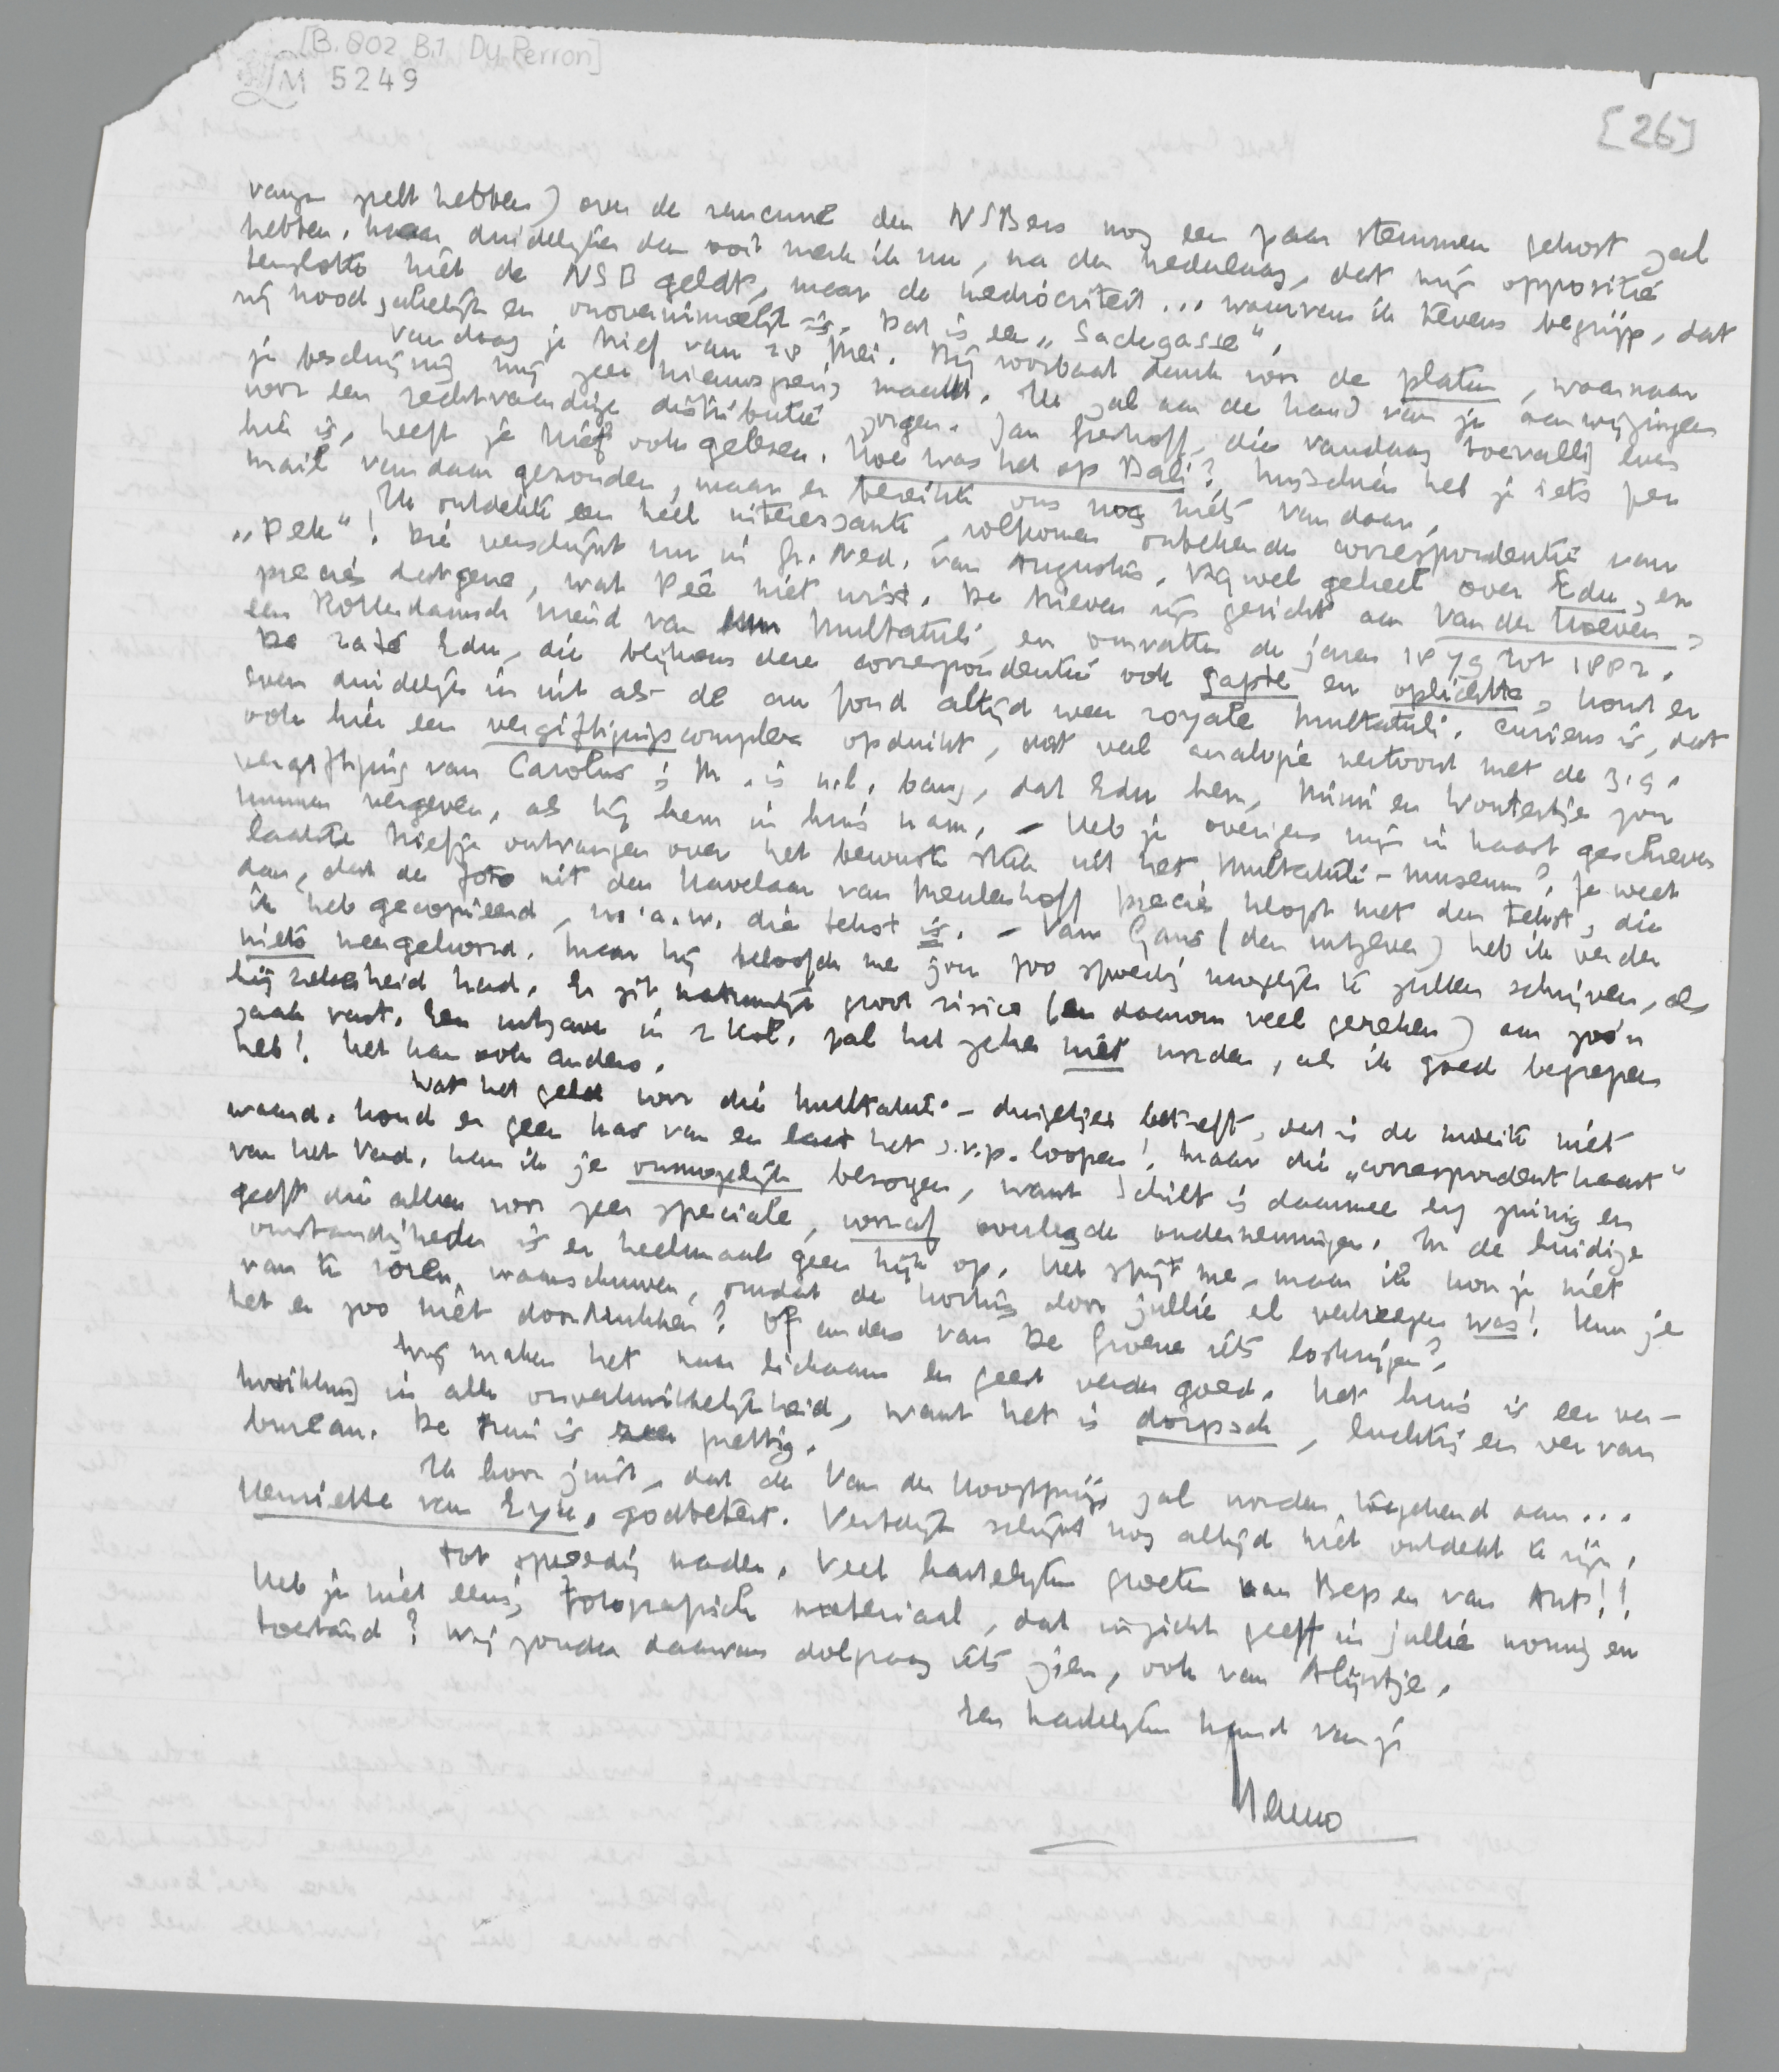 [B. 802 B.1 Du Perron]
LM 5249
[26]
vangen zelt hebben) over de rancune der NSBers nog een paar stemmen gekost zal
hebben. Maar duidelijker dan ooit merk ik nu, na de nederlaag, dat mijn oppositie
tenslotte niet de NSB geldt, maar de mediocriteit... waarvan ik tevens begrijp, dat
zij noodzakelijk en onoverwinnelijk is. Dat is een „Sackgasse".
Vandaag je brief van 28 Mei. Bij voorbaat dank voor de platen, waarnaar
je beschrijving mij zeer nieuwsgierig maakt. Ik zal aan de hand van je aanwijzingen
voor een rechtvaardige distributie zorgen. Jan Greshoff, die vandaag toevallig even
hier is, heeft je brief ook gelezen. Hoe was het op Bali? Misschien heb je iets per
mail vandaar gezonden, maar er bereikte ons nog niets vandaar.
Ik ontdekte een heel interessante, volkomen onbekende correspondentie van
„Dek"! Die verschijnt nu in Gr. Ned. van Augustus. Bijwel geheel over Edu, en
precies datgene, wat Pée niet wist. De brieven zijn gericht aan Van der Hoeven,
een Rotterdamsch vriend van Multatuli, en omvatten de jaren 1879 tot 1882.
De raté Edu, die blijkens deze correspondentie ook gapte en oplichtte, komt er
even duidelijk in uit als de au fond altijd weer royale Multatuli. Curieus is, dat
ook hier een vergiftigingscomplex opduikt, dat veel analogie vertoont met de z.g.
vergiftiging van Carolus; M. is n.l. bang, dat Edu hem, Mimi en Woutertje zou
kunnen vergeven, als hij hem in huis nam. – Heb je overigens mijn in haast geschreven
laatste briefje ontvangen over het bewuste stuk uit het Multatuli-museum? Je weet
dan, dat de foto uit den Havelaar van Meulenhoff precies klopt met den tekst, die
ik heb gecopieerd, m.a.w. die tekst is. – Van Gans (den uitgever) heb ik verder
niets meer gehoord. Maar hij beloofde me jou zoo spoedig mogelijk te zullen schrijven, als
hij zekerheid had. Er zit natuurlijk groot risico (en daarom veel gereken) aan zoo'n
zaak vast. Een uitgave in 2 kol. zal het zeker niet worden, als ik goed begrepen
heb! Het kan ook anders.
Wat het geld voor die Multatuli-dingetjes betreft, dat is de moeite niet
waard. Houd er geen kas van en laat het s.v.p. loopen! Maar die „correspondentkaart"
van het Vad. kan ik je onmogelijk bezorgen, want Schilt is daarmee erg zuinig en
geeft die alleen voor zeer speciale, vooraf overlegde ondernemingen. In de huidige
omstandigheden is er heelemaal geen kijk op. Het spijt me, maar ik kon je niet
van te voren waarschuwen, omdat de hut door jullie al verkregen was! Kun je
het er zoo niet doordrukken? Of anders van De Groene iets loskrijgen?
Wij maken het naar lichaam en geest verder goed. Het huis is een ver-
kwikking in alle onverkwikkelijkheid, want het is dorpsch, luchtig en ver van
bureau. De tuin is zeer prettig.
Ik hoor juist, dat de Van der Hoogtprijs zal worden toegekend aan...
Henriette van Eyk, godbetert. Vestdijk schijnt nog altijd niet ontdekt te zijn.
Tot spoedig nader. Veel hartelijke groeten van Bep en van Ant!!
Heb je niet eens fotografisch materiaal, dat inzicht geeft in jullie woning en
toestand? Wij zouden daarvan dolgraag iets zien, ook van Alijntje.
Een hartelijke hand van je
Menno